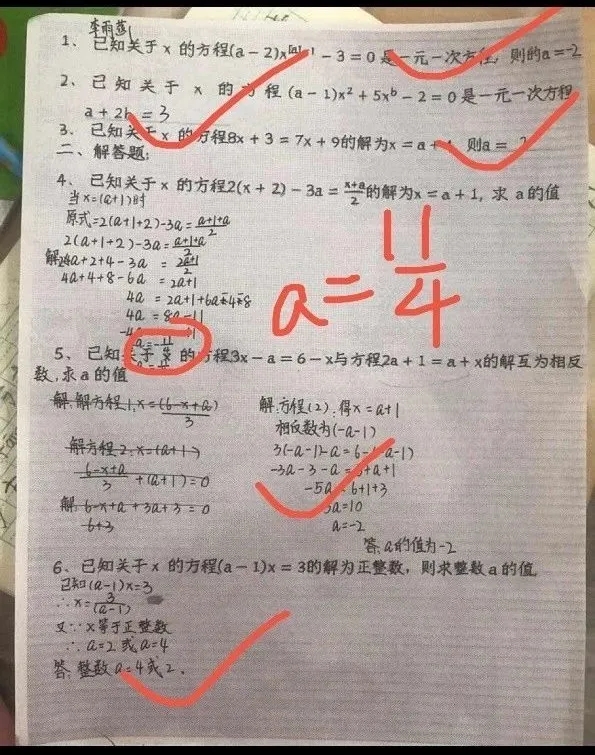 李雨蒸
1、已知关于 x 的方程(a－2)x|a|-1－3＝0 是一元一次方程，则的a＝-2
2、已知关于 x 的方程 (a－1)x²＋5xᵇ－2＝0 是一元一次方程
a＋2b＝3
3、已知关于 x 的方程8x＋3＝7x＋9的解为x＝a＋，则a＝
二、解答题：
4、已知关于 x 的方程2(x＋2)－3a＝(x+a)/2的解为x＝a＋1，求 a的值
当x=(a+1)时
原式=2(a+1+2)-3a=(a+1+a)/2
2(a+1+2)-3a=(a+1+a)/2
解 2a+2+4-3a = (2a+1)/2
4a+4+8-6a = 2a+1
4a = 2a+1+6a-4-8
4a = 8a-11
a=11/4
5、已知关于 x 的方程3x－a＝6－x与方程2a＋1＝a＋x的解互为相反
数,求 a 的值
解:解方程1,x=(6-x+a)/3
解方程2:x=(a+1)
(6-x+a)/3+(a+1)=0
解: 6-x+a+3a+3=0
6+3
解:方程(2):得x=a+1
相反数为(-a-1)
3(-a-1)-a=6-(-a-1)
-3a-3-a=6+a+1
-5a=6+1+3
5a=10
a=-2
答:a的值为-2
6、已知关于 x 的方程(a－1)x＝3的解为正整数，则求整数 a 的值
已知(a-1)x=3
∴x=3/(a-1)
又∵x等于正整数
∴a=2或a=4
答:整数a=4或2.